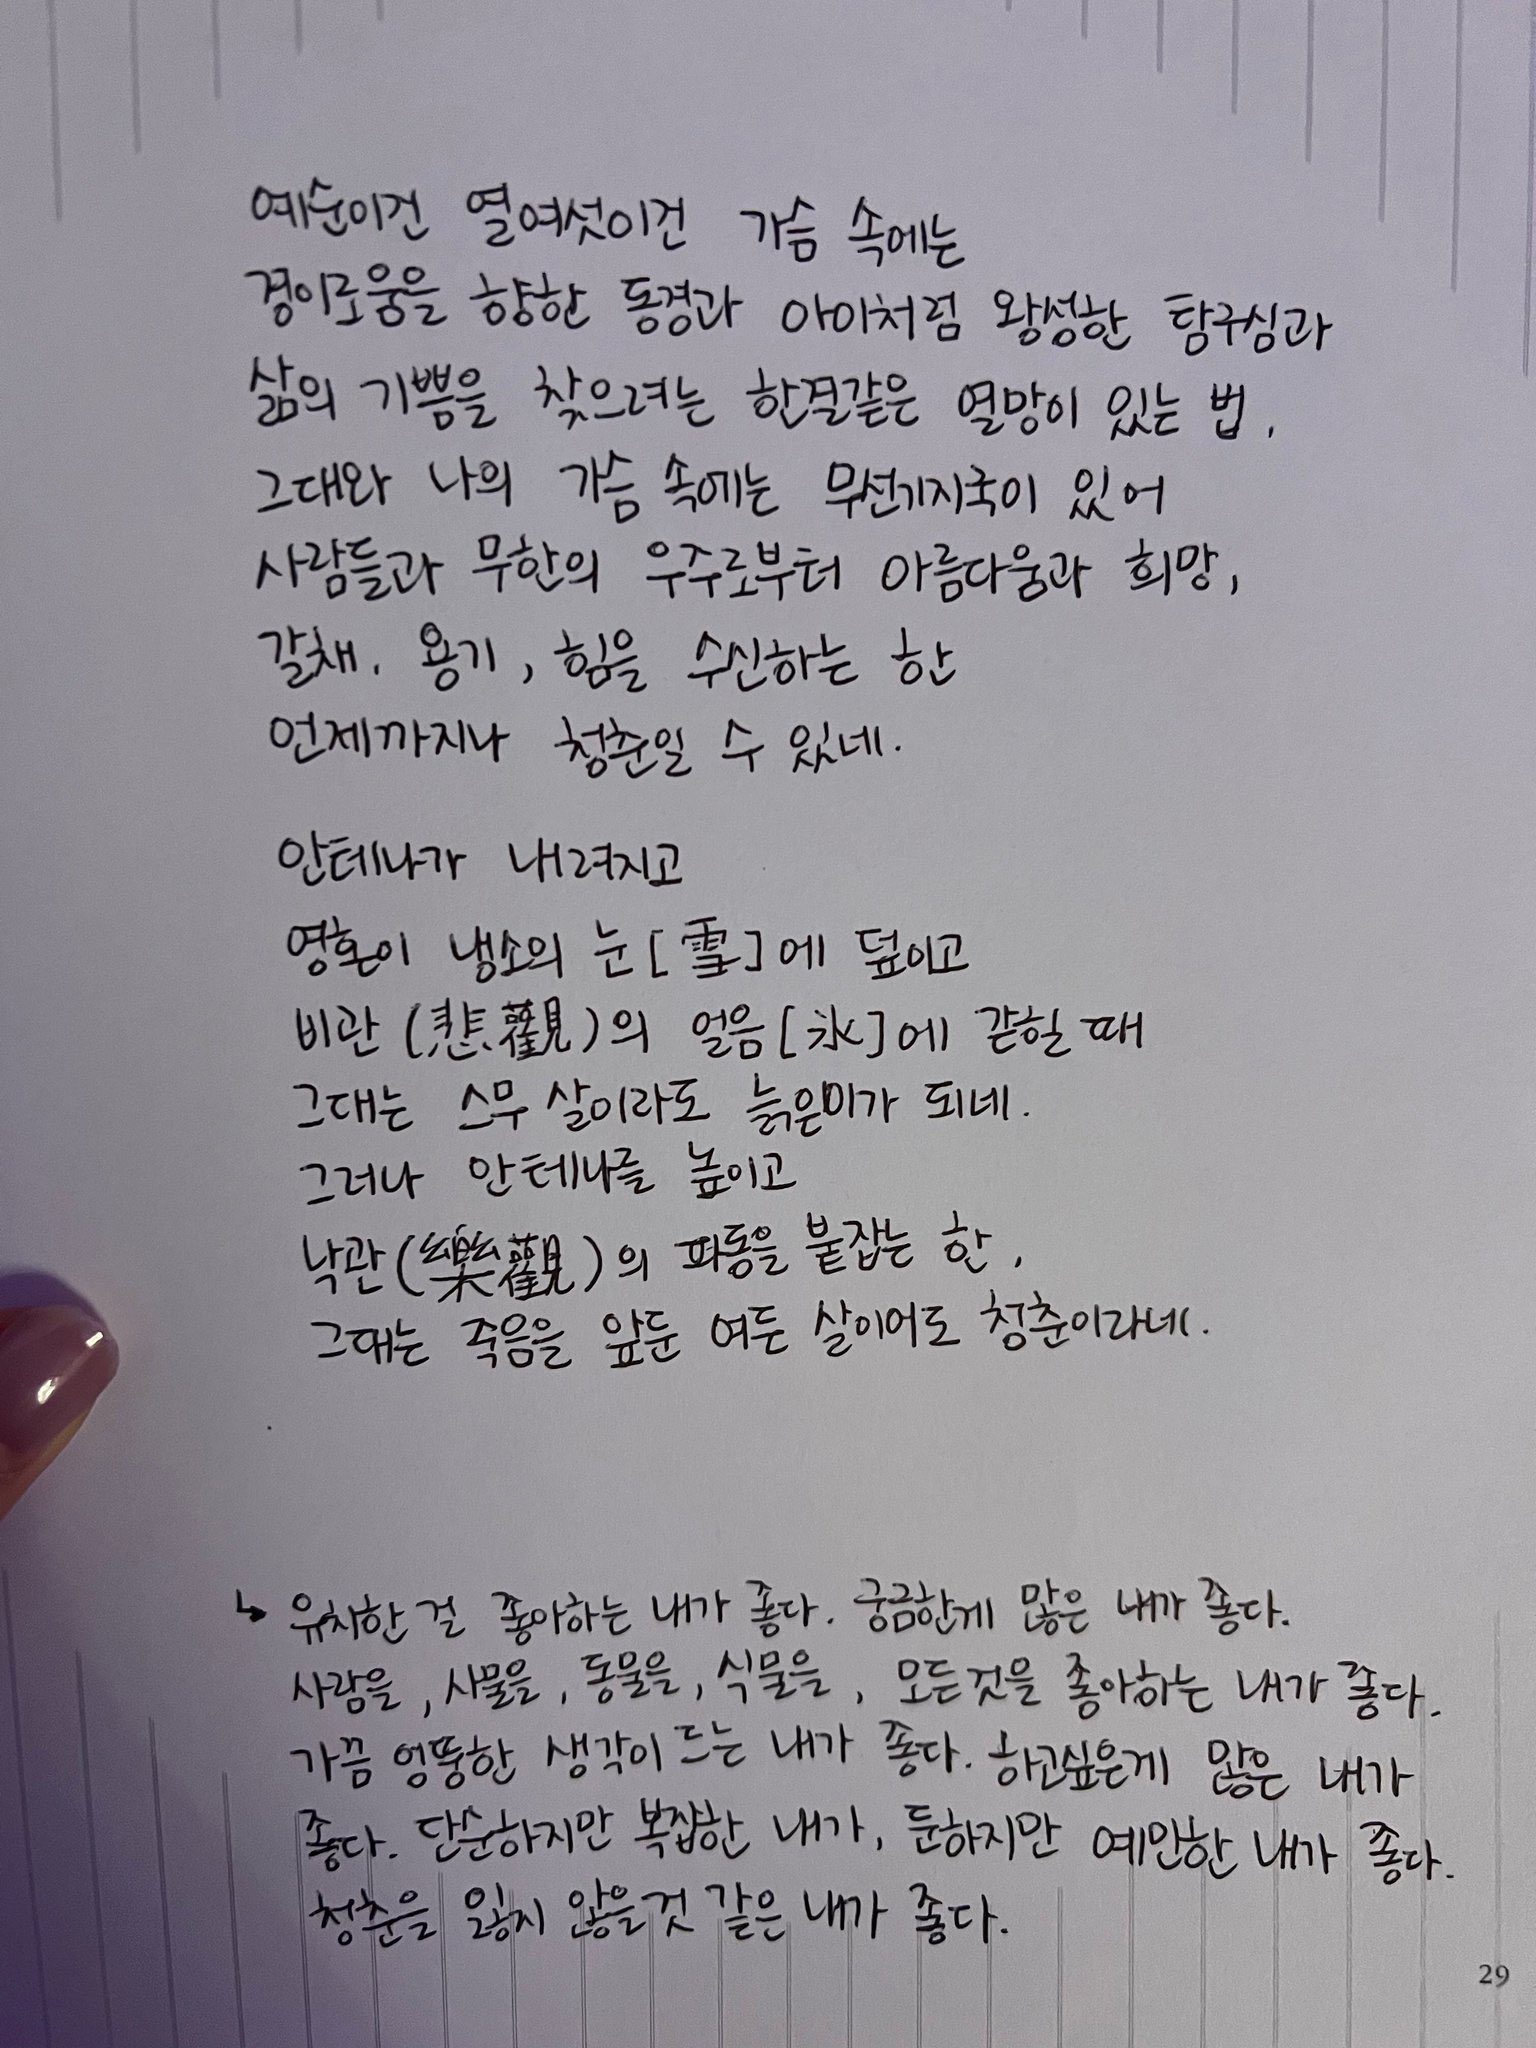 예순이건 열여섯이건 가슴 속에는
경이로움을 향한 동경과 아이처럼 왕성한 탐구심과
삶의 기쁨을 찾으려는 한결같은 열망이 있는 법,
그대와 나의 가슴 속에는 무선기지국이 있어
사람들과 무한의 우주로부터 아름다움과 희망,
갈채, 용기, 힘을 수신하는 한
언제까지나 청춘일 수 있네.
안테나가 내려지고
영혼이 냉소의 눈[雪]에 덮이고
비관(悲觀)의 얼음[氷]에 갇힐 때
그대는 스무 살이라도 늙은이가 되네.
그러나 안테나를 높이고
낙관(樂觀)의 파동을 붙잡는 한,
그대는 죽음을 앞둔 여든 살이어도 청춘이라네.
↳ 유치한 걸 좋아하는 내가 좋다. 궁금한게 많은 내가 좋다.
사람을, 사물을, 동물을, 식물을, 모든것을 좋아하는 내가 좋다.
가끔 엉뚱한 생각이 드는 내가 좋다. 하고싶은게 많은 내가
좋다. 단순하지만 복잡한 내가, 둔하지만 예민한 내가 좋다.
청춘을 잃지 않을것 같은 내가 좋다.
29